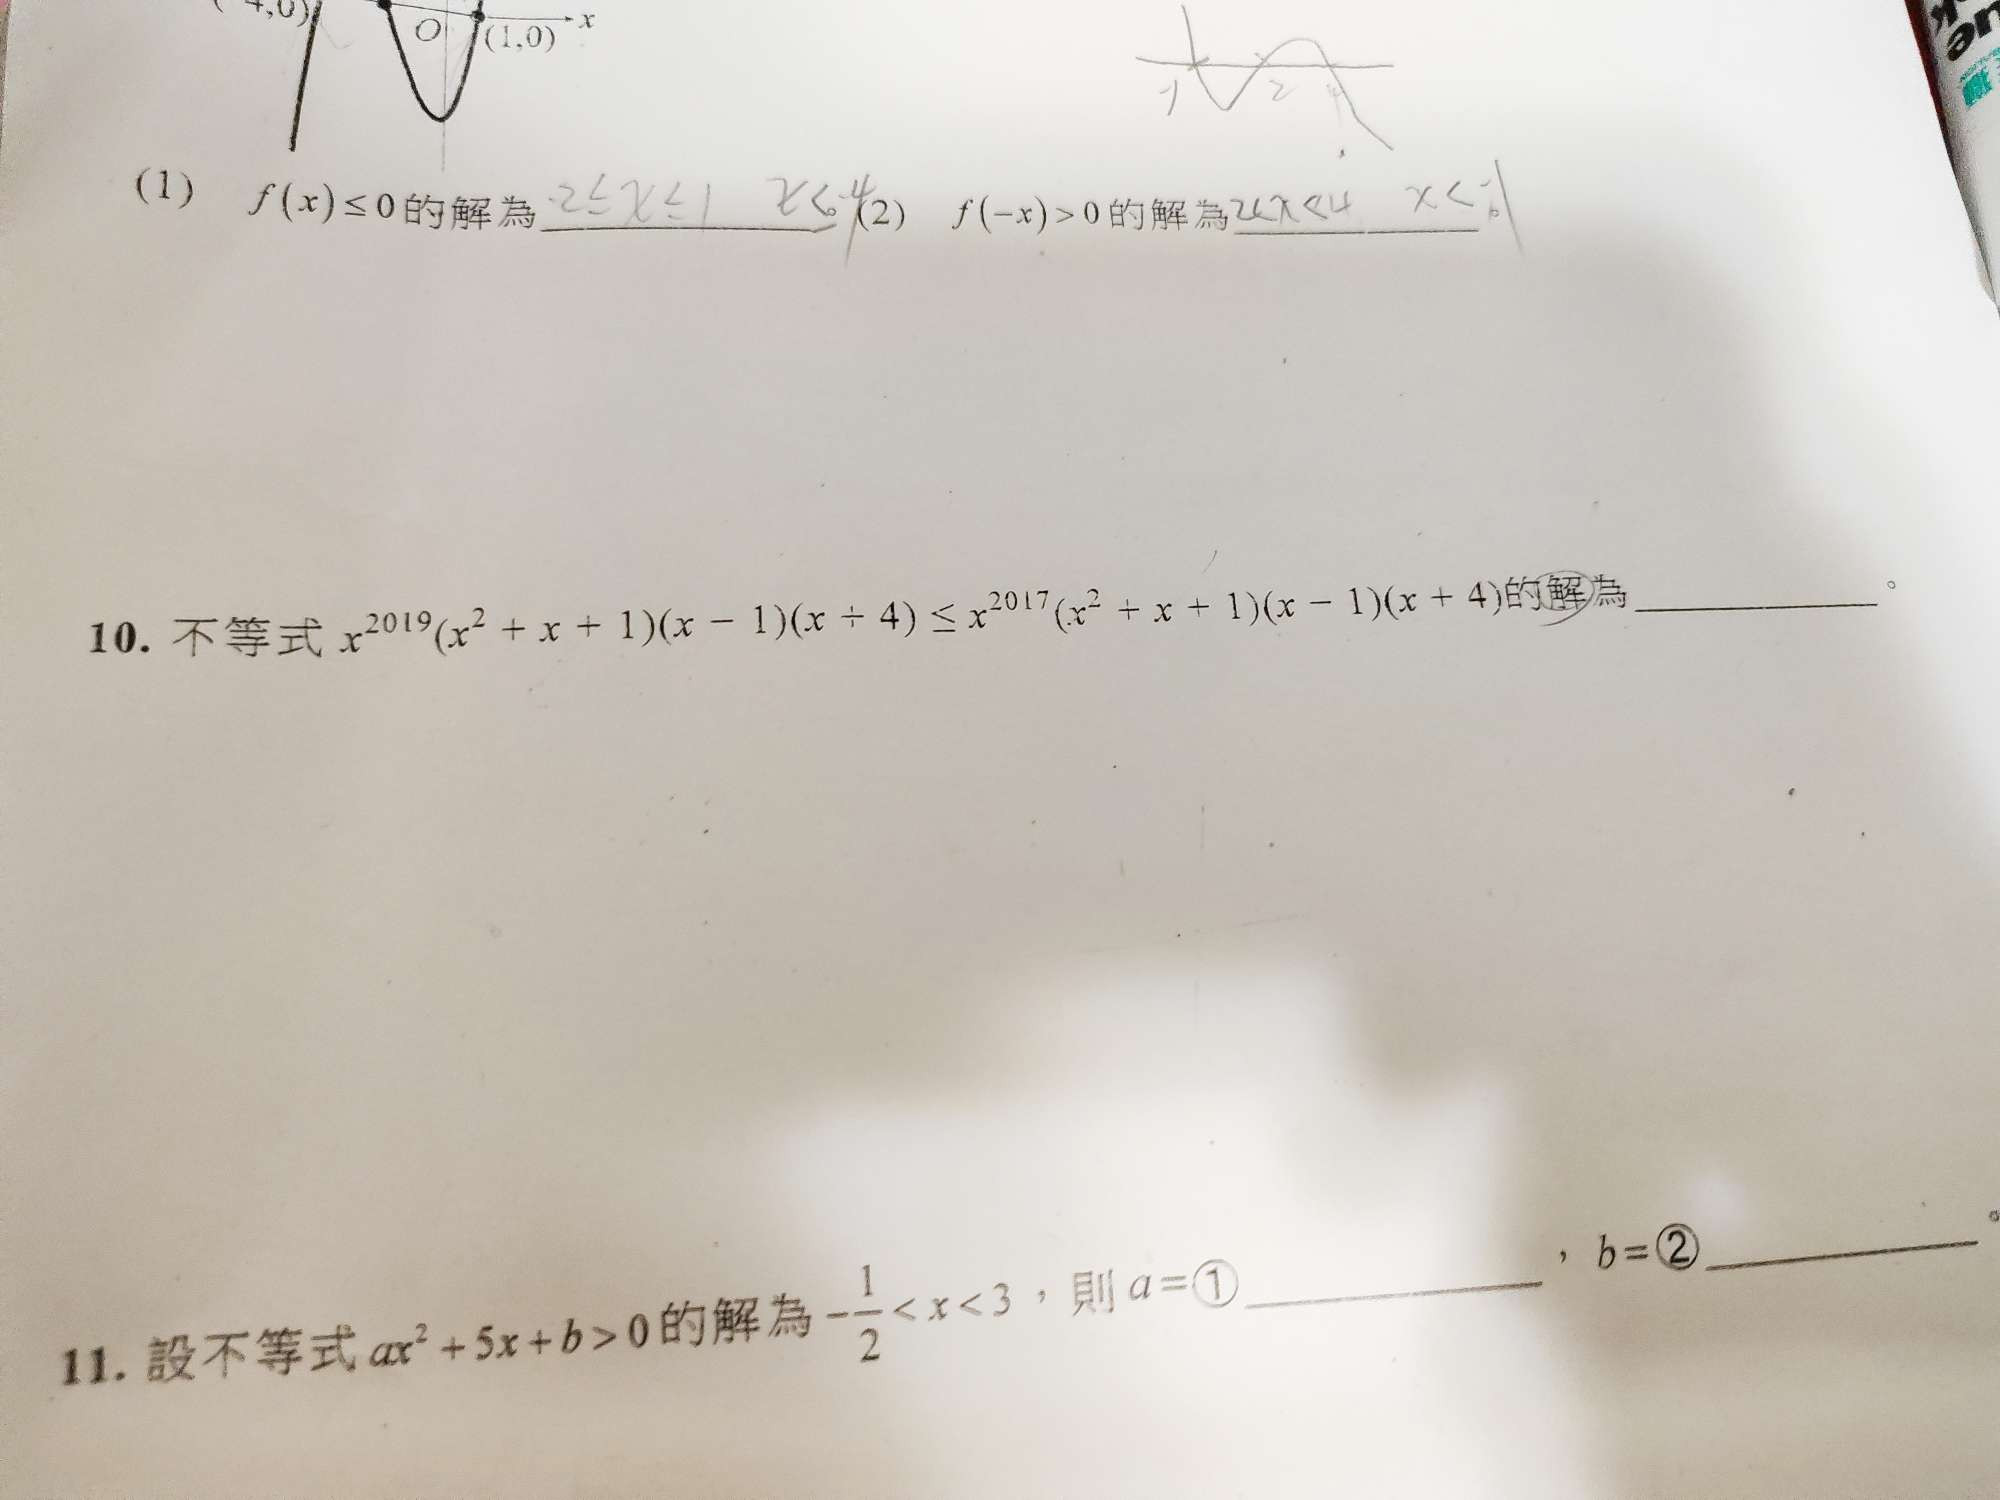 (-4,0)
O (1,0) x
-1 2 4
(1) f(x)≤0的解為 -2≤x≤1 x≤-4 (2) f(-x)>0的解為 2<x<4 x<-1
10. 不等式 x^2019(x^2 + x + 1)(x − 1)(x + 4) ≤ x^2017(x^2 + x + 1)(x − 1)(x + 4)的解為________。
11. 設不等式 ax^2+5x+b>0的解為 -1/2<x<3，則 a=①________，b=②________。